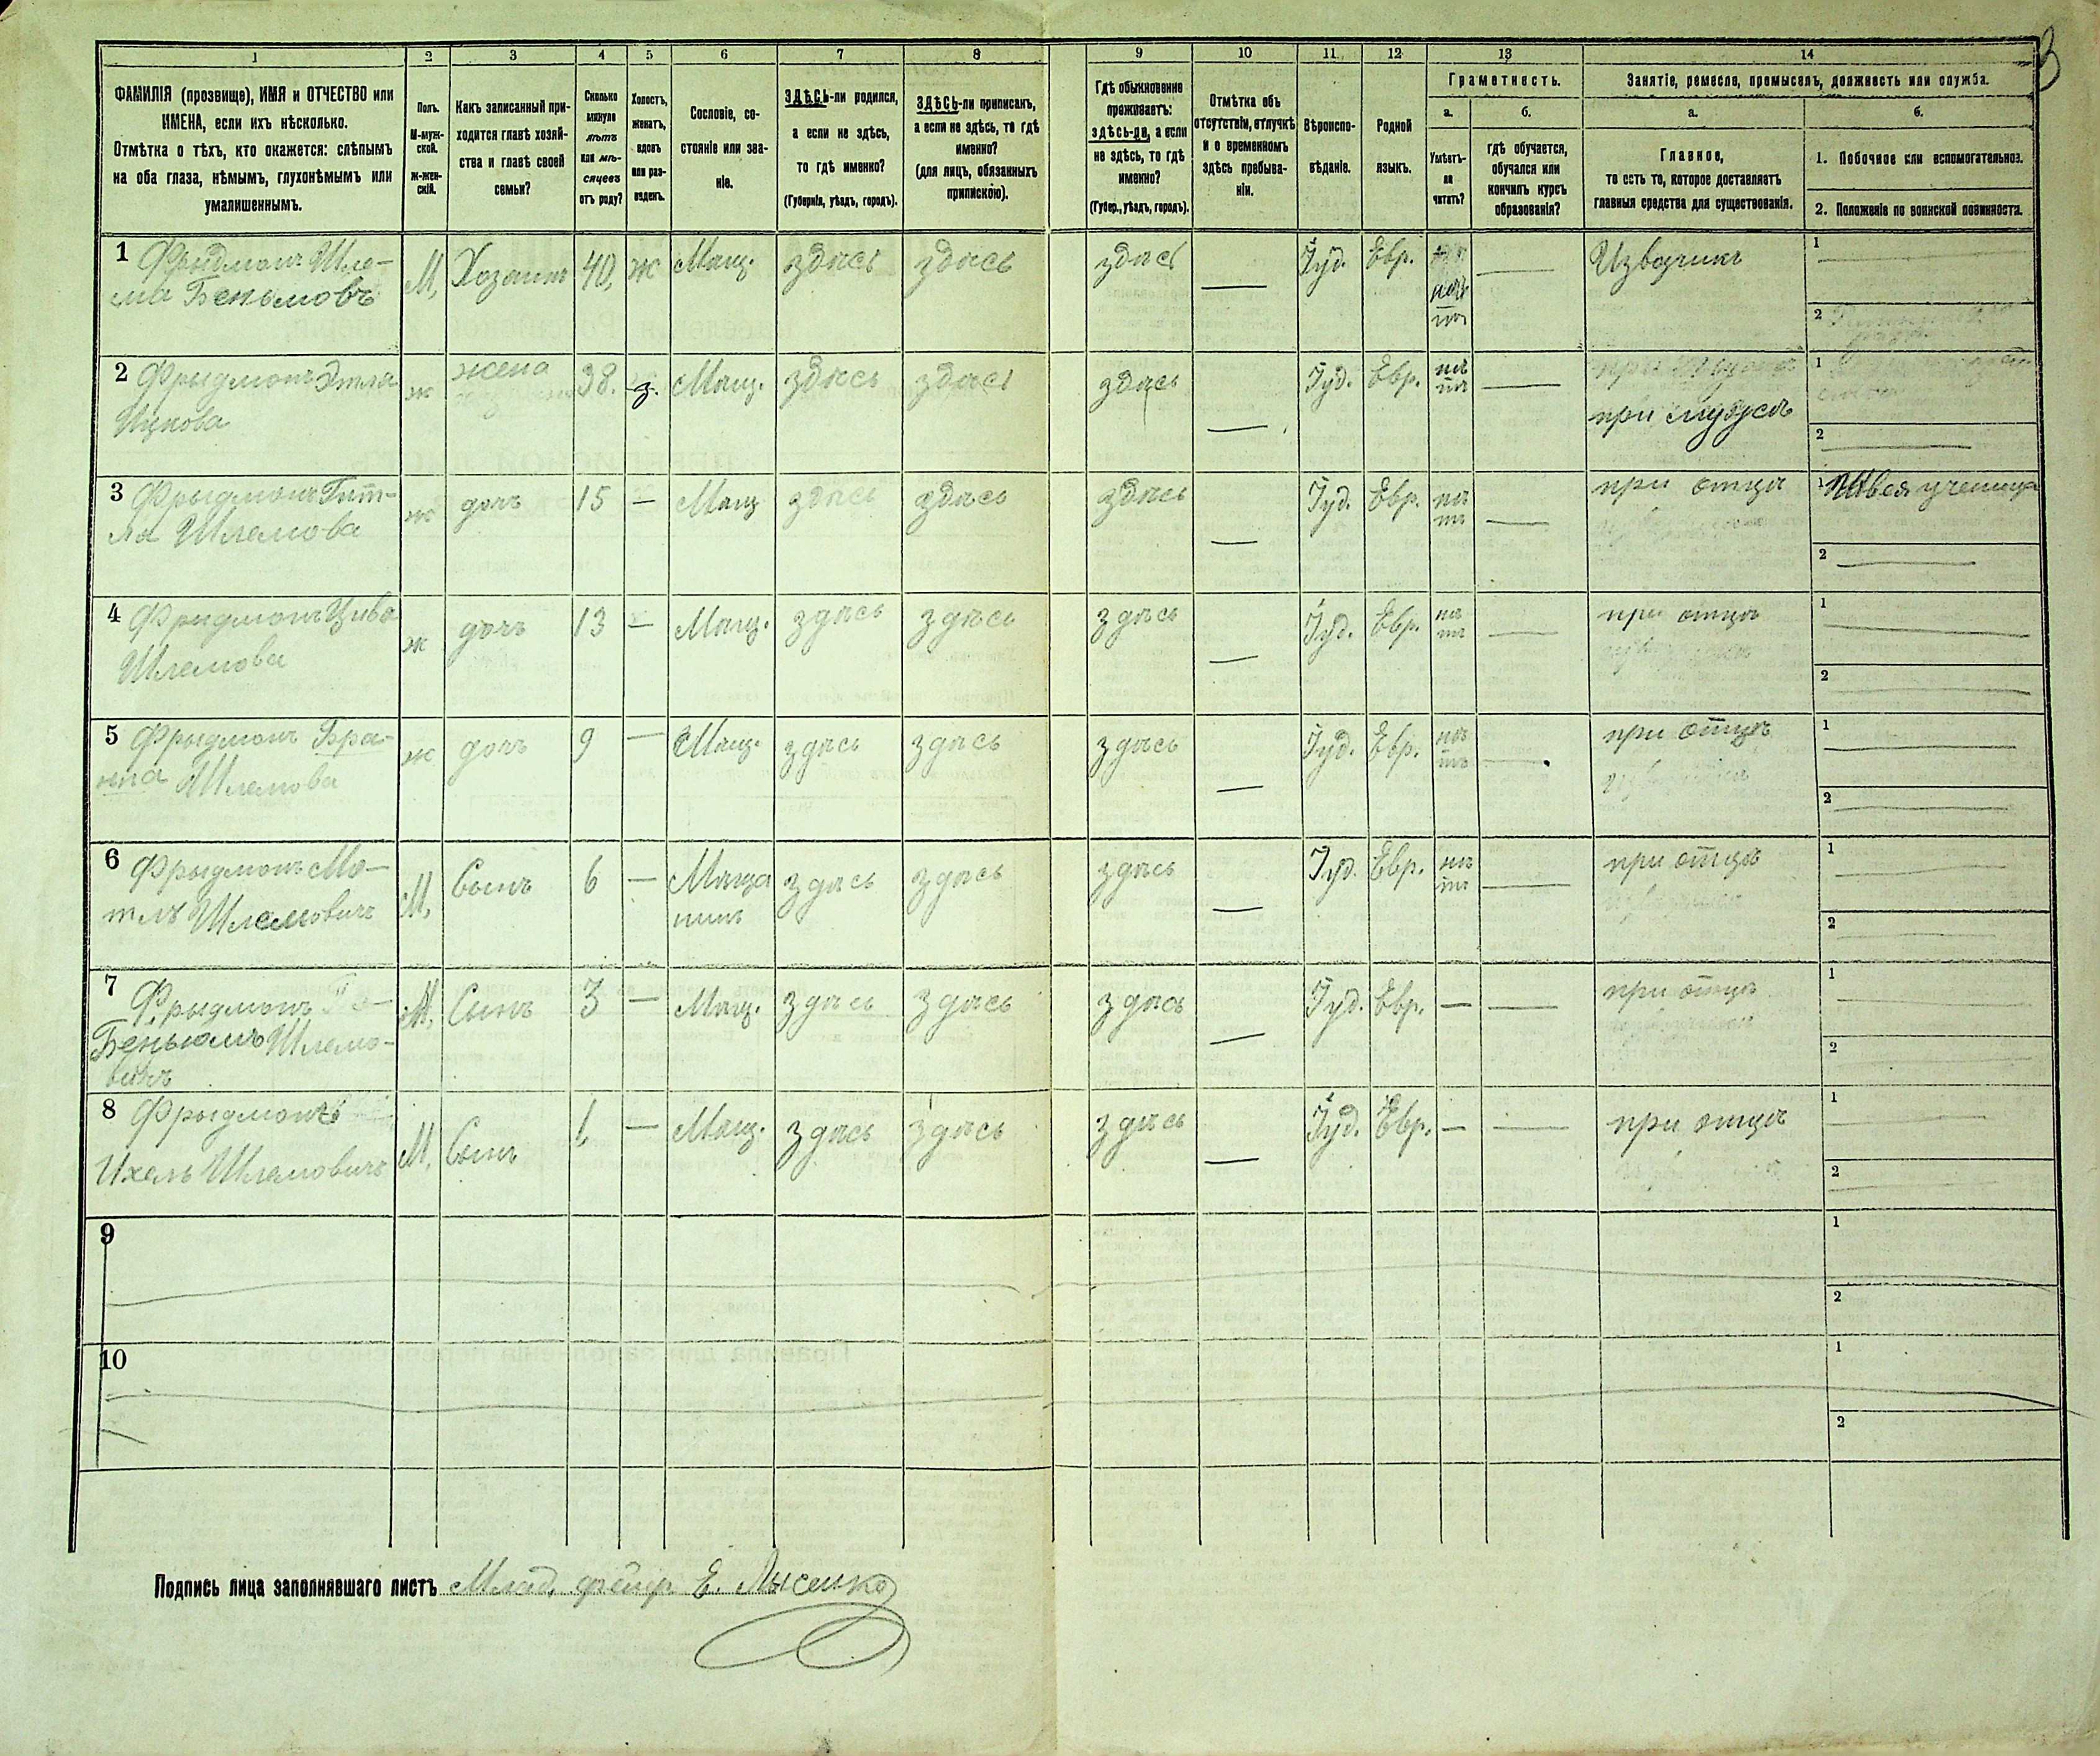 3
1
2
3
4
5
6
7
8
9
10
11
12
13
14
ФАМИЛІЯ (прозвище), ИМЯ и ОТЧЕСТВО или
ИМЕНА, если ихъ нѣсколько.
Отмѣтка о тѣхъ, кто окажется: слѣпымъ
на оба глаза, нѣмымъ, глухонѣмымъ или
умалишеннымъ.
Полъ.
М-муж-
ской.
ж-жен-
скій.
Какъ записанный при-
ходится главѣ хозяй-
ства и главѣ своей
семьи?
Сколько
минуло
лѣтъ
или мѣ-
сяцевъ
отъ роду?
Холостъ,
женатъ,
вдовъ
или раз-
веденъ.
Сословіе, со-
стояніе или зва-
ніе.
ЗДѢСЬ-ли родился,
а если не здѣсь,
то гдѣ именно?
(Губернія, уѣздъ, городъ).
ЗДѢСЬ-ли приписанъ,
а если не здѣсь, то гдѣ
именно?
(для лицъ, обязанныхъ
припискою).
Гдѣ обыкновенно
проживаетъ:
здѣсь-ли, а если
не здѣсь, то гдѣ
именно?
(Губер., уѣздъ, городъ).
Отмѣтка объ
отсутствіи, отлучкѣ
и о временномъ
здѣсь пребыва-
ніи.
Вѣроиспо-
вѣданіе.
Родной
языкъ.
Грамотность.
а.
Умѣетъ-
ли
читать?
б.
гдѣ обучается,
обучался или
кончилъ курсъ
образованія?
Занятіе, ремесло, промыселъ, должность или служба.
а.
Главное,
то есть то, которое доставляетъ
главныя средства для существованія.
б.
1. Побочное или вспомогательное.
2. Положеніе по воинской повинности.
1 Фрыдманъ Шле-
ма Беньюмовъ
М. Хозяинъ 40, ж Мѣщ. здѣсь здѣсь здѣсь — Іуд. Евр. нѣтъ — Извозчикъ
1
2
2 Фрыдманъ Этля
Ицкова
ж жена 38. з. Мѣщ. здѣсь здѣсь здѣсь — Іуд. Евр. нѣтъ —
при мужѣ
1
2
3 Фрыдманъ Гит-
ля Шлемова
ж дочь 15 — Мѣщ здѣсь здѣсь здѣсь — Іуд. Евр. нѣтъ — при отцѣ
1 Швея ученица
2
4 Фрыдманъ Цива
Шлемова
ж дочь 13 — Мѣщ. здѣсь здѣсь здѣсь — Іуд. Евр. нѣтъ — при отцѣ
1
2
5 Фрыдманъ Бра-
нна Шлемова
ж дочь 9 — Мѣщ. здѣсь здѣсь здѣсь — Іуд. Евр. нѣтъ — при отцѣ
1
2
6 Фрыдманъ Мо-
тль Шлемовичъ
М. Сынъ 6 — Мѣща
нинъ здѣсь здѣсь здѣсь — Іуд. Евр. нѣтъ — при отцѣ
1
2
7 Фрыдманъ
Беньюмъ Шлемо-
вичъ
М. Сынъ 3 — Мѣщ. здѣсь здѣсь здѣсь — Іуд. Евр. — — при отцѣ
1
2
8 Фрыдманъ
Ихель Шлемовичъ
М. Сынъ 1, — Мѣщ. здѣсь здѣсь здѣсь — Іуд. Евр. — — при отцѣ
1
2
9
1
2
10
1
2
Подпись лица заполнявшаго листъ Млад. фейр. Е. Лысенко